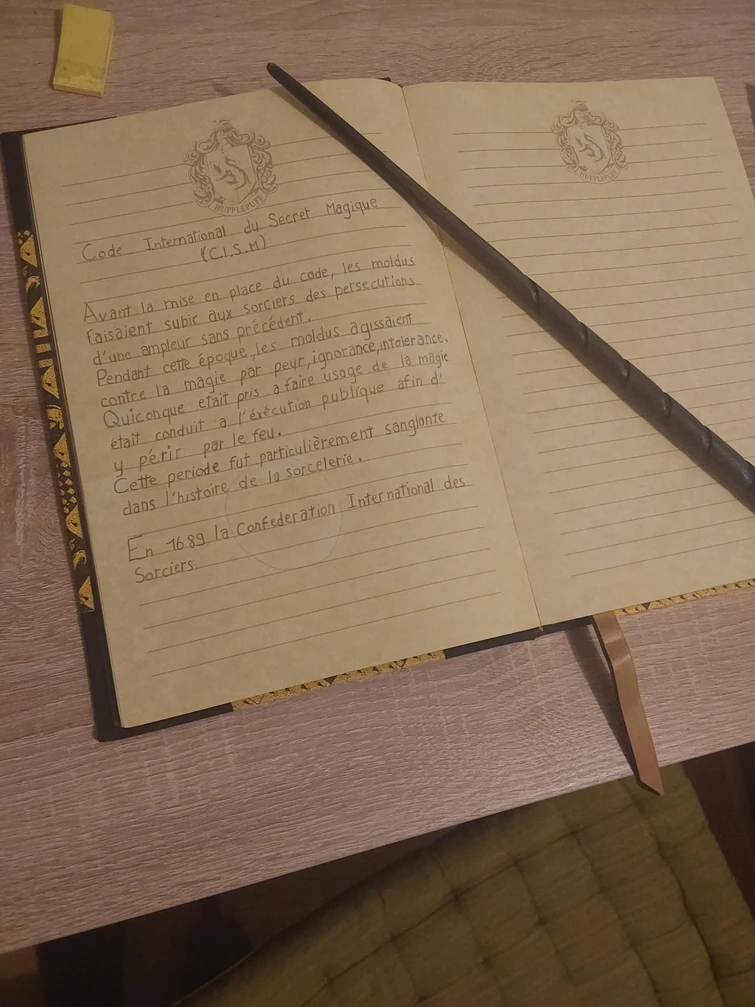 HUFFLEPUFF
Code International du Secret Magique
(C.I.S.M)
Avant la mise en place du code, les moldus
faisaient subir aux sorciers des persecutions
d'une ampleur sans précédent.
Pendant cette époque, les moldus agissaient
contre la magie par peur, ignorance, intolerance.
Quiconque etait pris a faire usage de la magie
était conduit a l'éxécution publique afin d'
y périr par le feu.
Cette periode fut particulièrement sanglante
dans l'histoire de la sorcelerie.
En 1689 la Confederation International des
Sorciers
HUFFLEPUFF